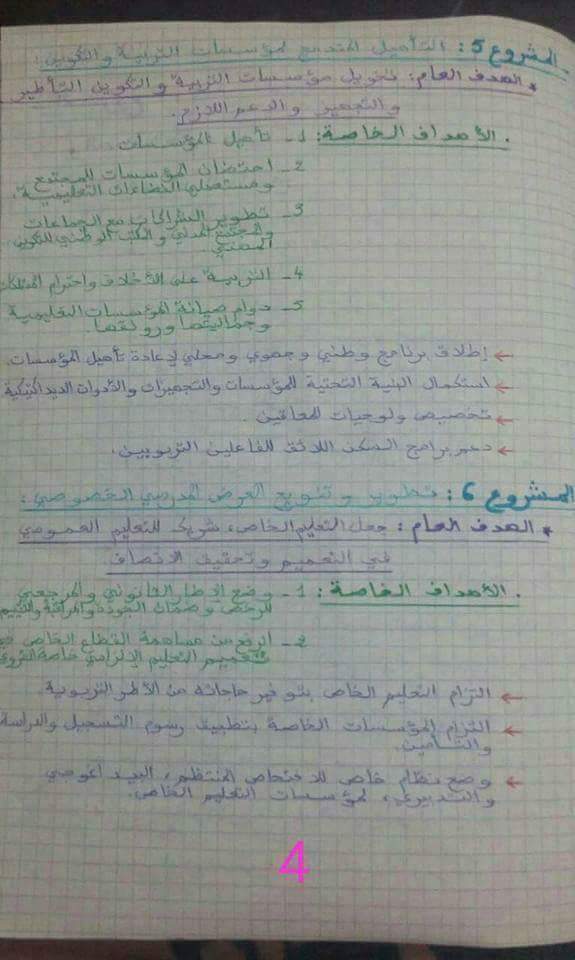 المشروع 5: التأهيل المندمج لمؤسسات التربية والتكوين:
* الهدف العام: تخويل مؤسسات التربية والتكوين التأطير
والتجهيز والدعم اللازم.
. الأهداف الخاصة: 1- تأهيل المؤسسات
2- احتضان المؤسسات للمجتمع
ومستعملي الفضاءات التعليمية.
3- تطوير الشراكات مع الجماعات
والمجتمع المدني والمكتب الوطني للتكوين
المهني
4- التربية على الأخلاق واحترام الممتلكات
5- دوام صيانة المؤسسات التعليمية
وجماليتها ورونقها.
← إطلاق برنامج وطني وجهوي ومحلي لإعادة تأهيل المؤسسات.
← استكمال البنية التحتية للمؤسسات والتجهيزات والأدوات الديداكتيكية
← تخصيص ولوجيات للمعاقين.
← دعم برامج السكن اللائق للفاعلين التربويين.
المشروع 6: تطوير وتنويع العرض المدرسي الخصوصي:
* الهدف العام: جعل التعليم الخاص، شريك للتعليم العمومي
في التعميم وتحقيق الانصاف
. الأهداف الخاصة: 1- وضع الإطار القانوني والمرجعي
للرخص وضمان الجودة والمراقبة والتقييم
2- الرفع من مساهمة القطاع الخاص في
تعميم التعليم الإلزامي خاصة القروي
← التزام التعليم الخاص بتوفير حاجاته من الأطر التربوية.
← التزام المؤسسات الخاصة بتطبيق رسوم التسجيل والدراسة
والتأمين.
← وضع نظام خاص للافتحاص المنتظم، البيداغوجي
والتدبيري، لمؤسسات التعليم الخاص.
4